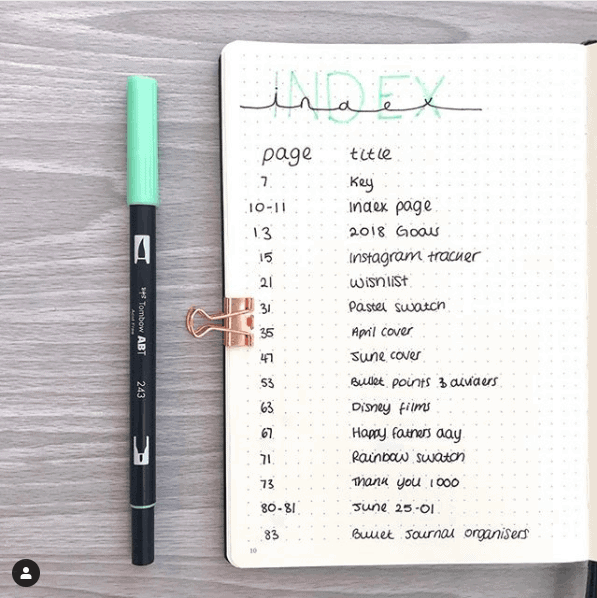 INDEX
index
page title
7 Key
10-11 Index page
13 2018 Goals
15 Instagram tracker
21 Wishlist
31 Pastel swatch
35 April cover
47 June cover
53 Bullet points & dividers
63 Disney films
67 Happy fathers day
71 Rainbow swatch
73 Thank you 1000
80-81 June 25-01
83 Bullet Journal organisers
10
Tombow ABT
Acid Free
243